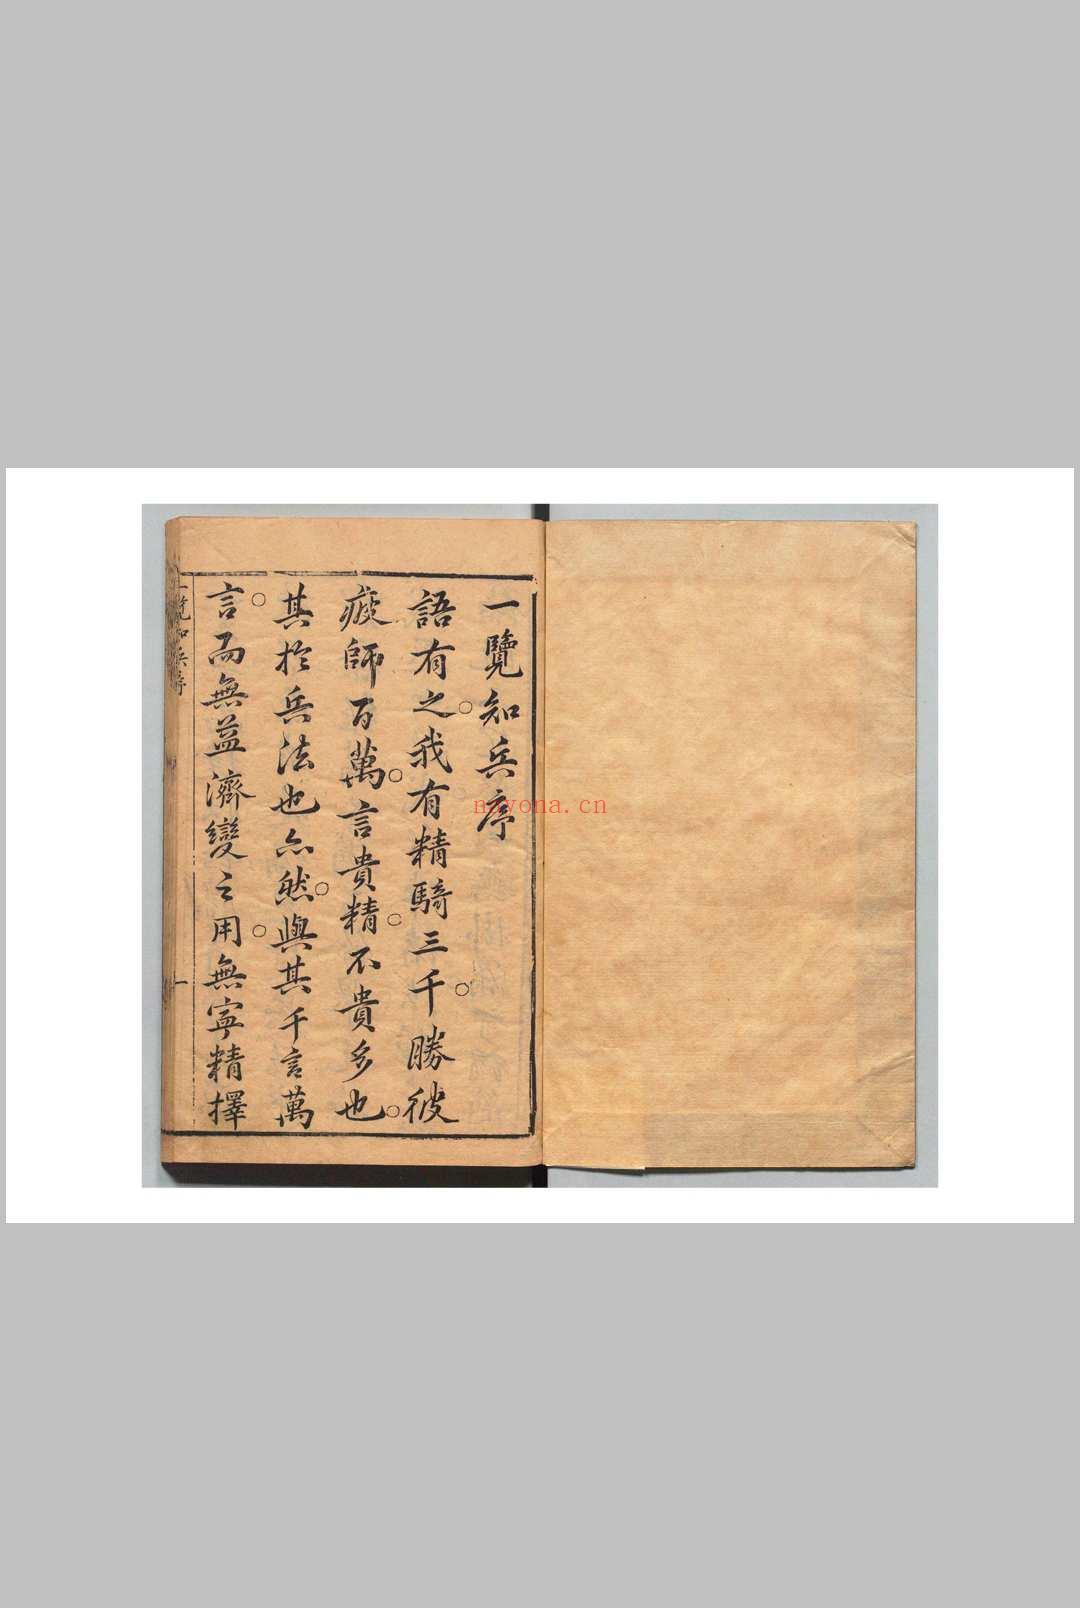 一覽知兵序
語有之。我有精騎三千。勝彼
疲師百萬。言貴精。不貴多也。
其於兵法也亦然。與其千言萬
言。而無益濟變之用。無寧精擇
一覽知兵序
一
nayona.cn